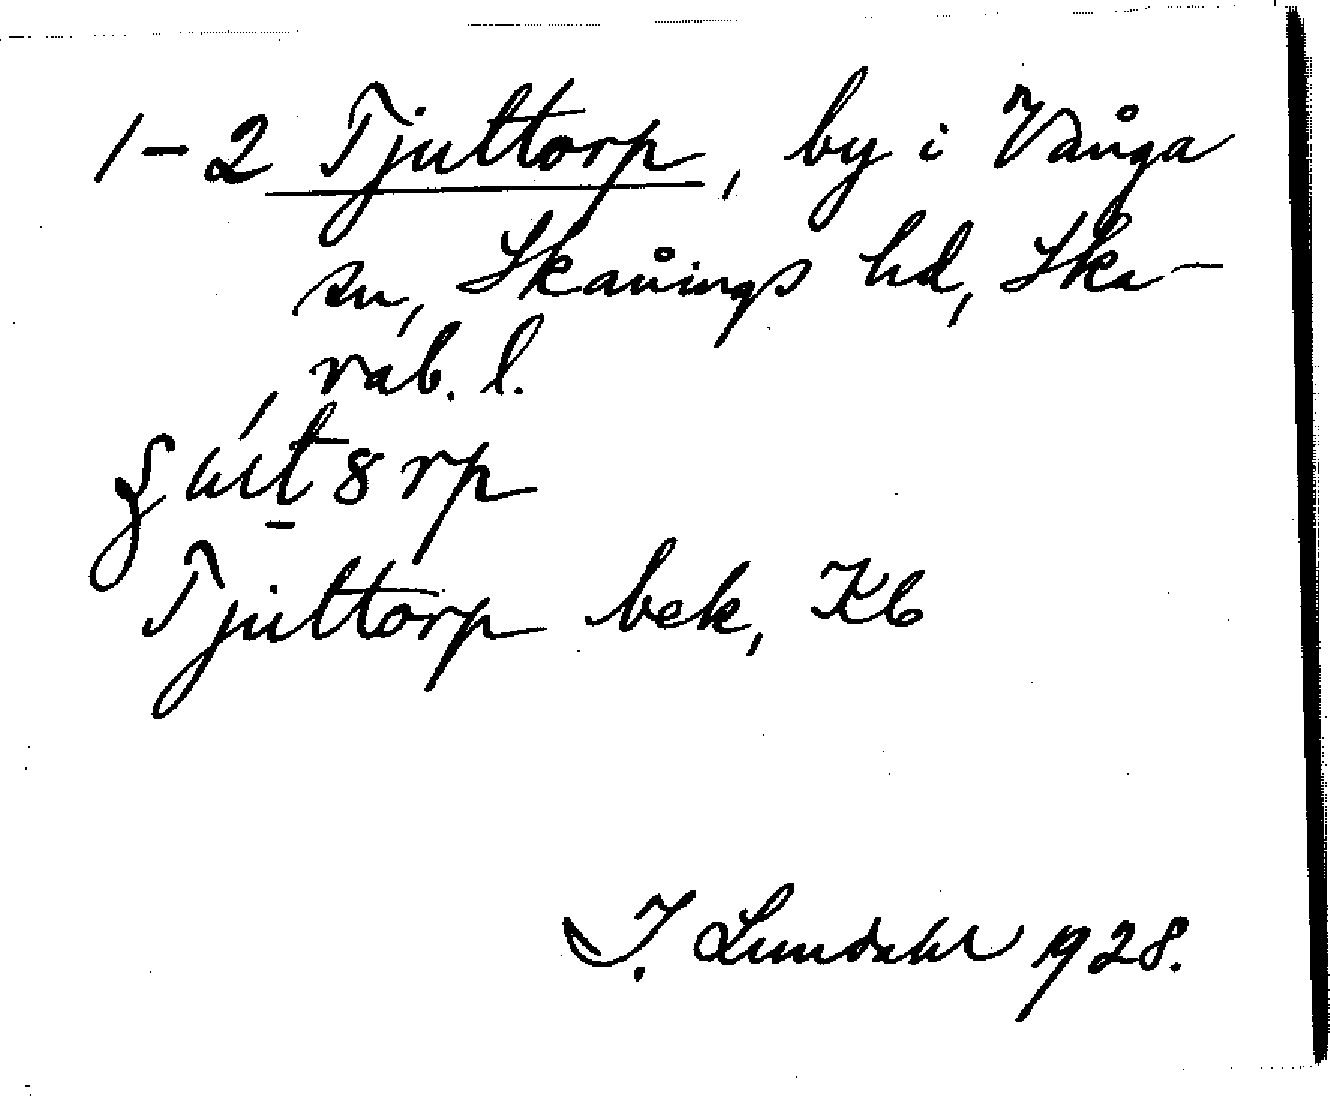 1-2 Tjuttorp, by i Vånga
sn, Skånings hd, Ska-
rab. l.
Tjuttorp bek, Kb
I. Lundahl 1928.